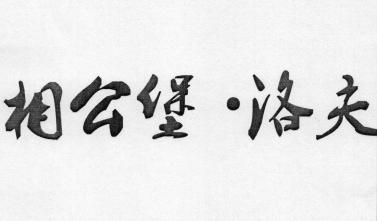 相公堡·洛夫